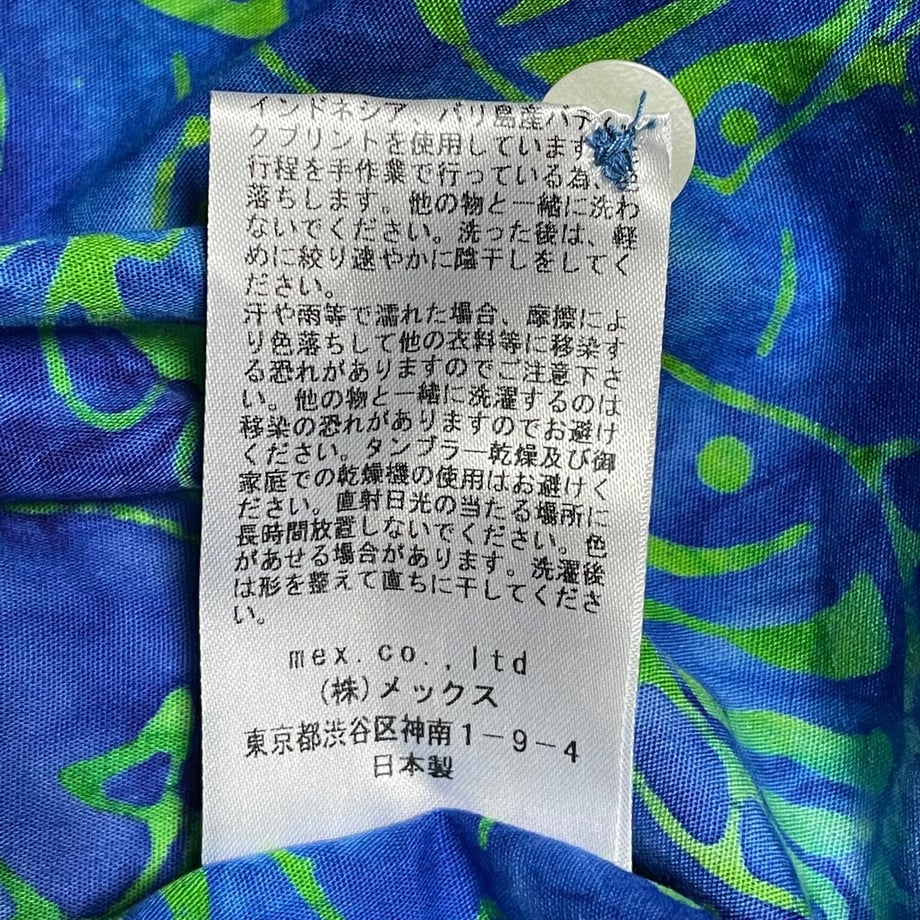 インドネシア、バリ島産バティッ
クプリントを使用しています。
行程を手作業で行っている為、色
落ちします。他の物と一緒に洗わ
ないでください。洗った後は、軽
めに絞り速やかに陰干しをしてく
ださい。
汗や雨等で濡れた場合、摩擦によ
り色落ちして他の衣料等に移染す
る恐れがありますのでご注意下さ
い。他の物と一緒に洗濯するのは
移染の恐れがありますのでお避け
ください。タンブラー乾燥及び御
家庭での乾燥機の使用はお避けく
ださい。直射日光の当たる場所に
長時間放置しないでください。色
があせる場合があります。洗濯後
は形を整えて直ちに干してくださ
い。
mex.co.,ltd
(株)メックス
東京都渋谷区神南1-9-4
日本製